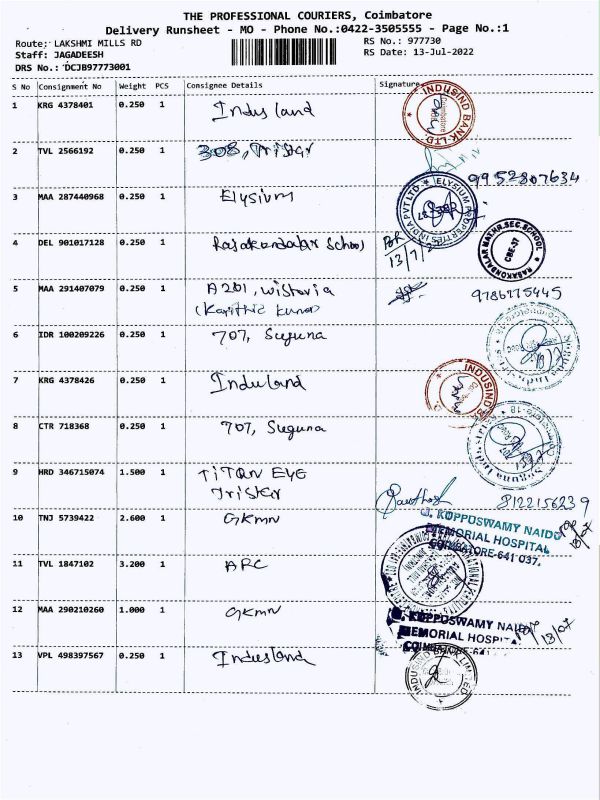 THE PROFESSIONAL COURIERS, Coimbatore
Delivery Runsheet - MO - Phone No.:0422-3505555 - Page No.:1
Route: LAKSHMI MILLS RD
RS No.: 977730
Staff: JAGADEESH
RS Date: 13-Jul-2022
DRS No.: DCJB97773001
S No Consignment No Weight PCS Consignee Details Signature
1 KRG 4378401 0.250 1 Indusland
INDUSIND BANK LTD
2 TVL 2566192 0.250 1 308, Tristar
9952807634
3 MAA 287440968 0.250 1 Elysium
ELYSIUM PROPERTIES INDIA PVT LTD
4 DEL 901017128 0.250 1 Rasakondalar School
13/7/2
RASAKONDALAR MAT.HR.SEC.SCHOOL
CBE-37
5 MAA 291407079 0.250 1 A201, Wistoria
9786775445
(Karithic Kumar)
6 IDR 100209226 0.250 1 707, Suguna
7 KRG 4378426 0.250 1 Induland
INDUSIND
8 CTR 718368 0.250 1 707, Suguna
9 HRD 346715074 1.500 1 TITAN EYE
Tristar
Santhosh 8122156239
10 TNJ 5739422 2.600 1 GKMN
G. KUPPUSWAMY NAIDU
MEMORIAL HOSPITAL
COIMBATORE-641 037.
13/07
11 TVL 1847102 3.200 1 ARC
12 MAA 290210260 1.000 1 GKMN
G. KUPPUSWAMY NAIDU
MEMORIAL HOSPITA
COIMBATORE-641
13/07
13 VPL 498397567 0.250 1 Indusland
INDUSIND BANK LIMITED